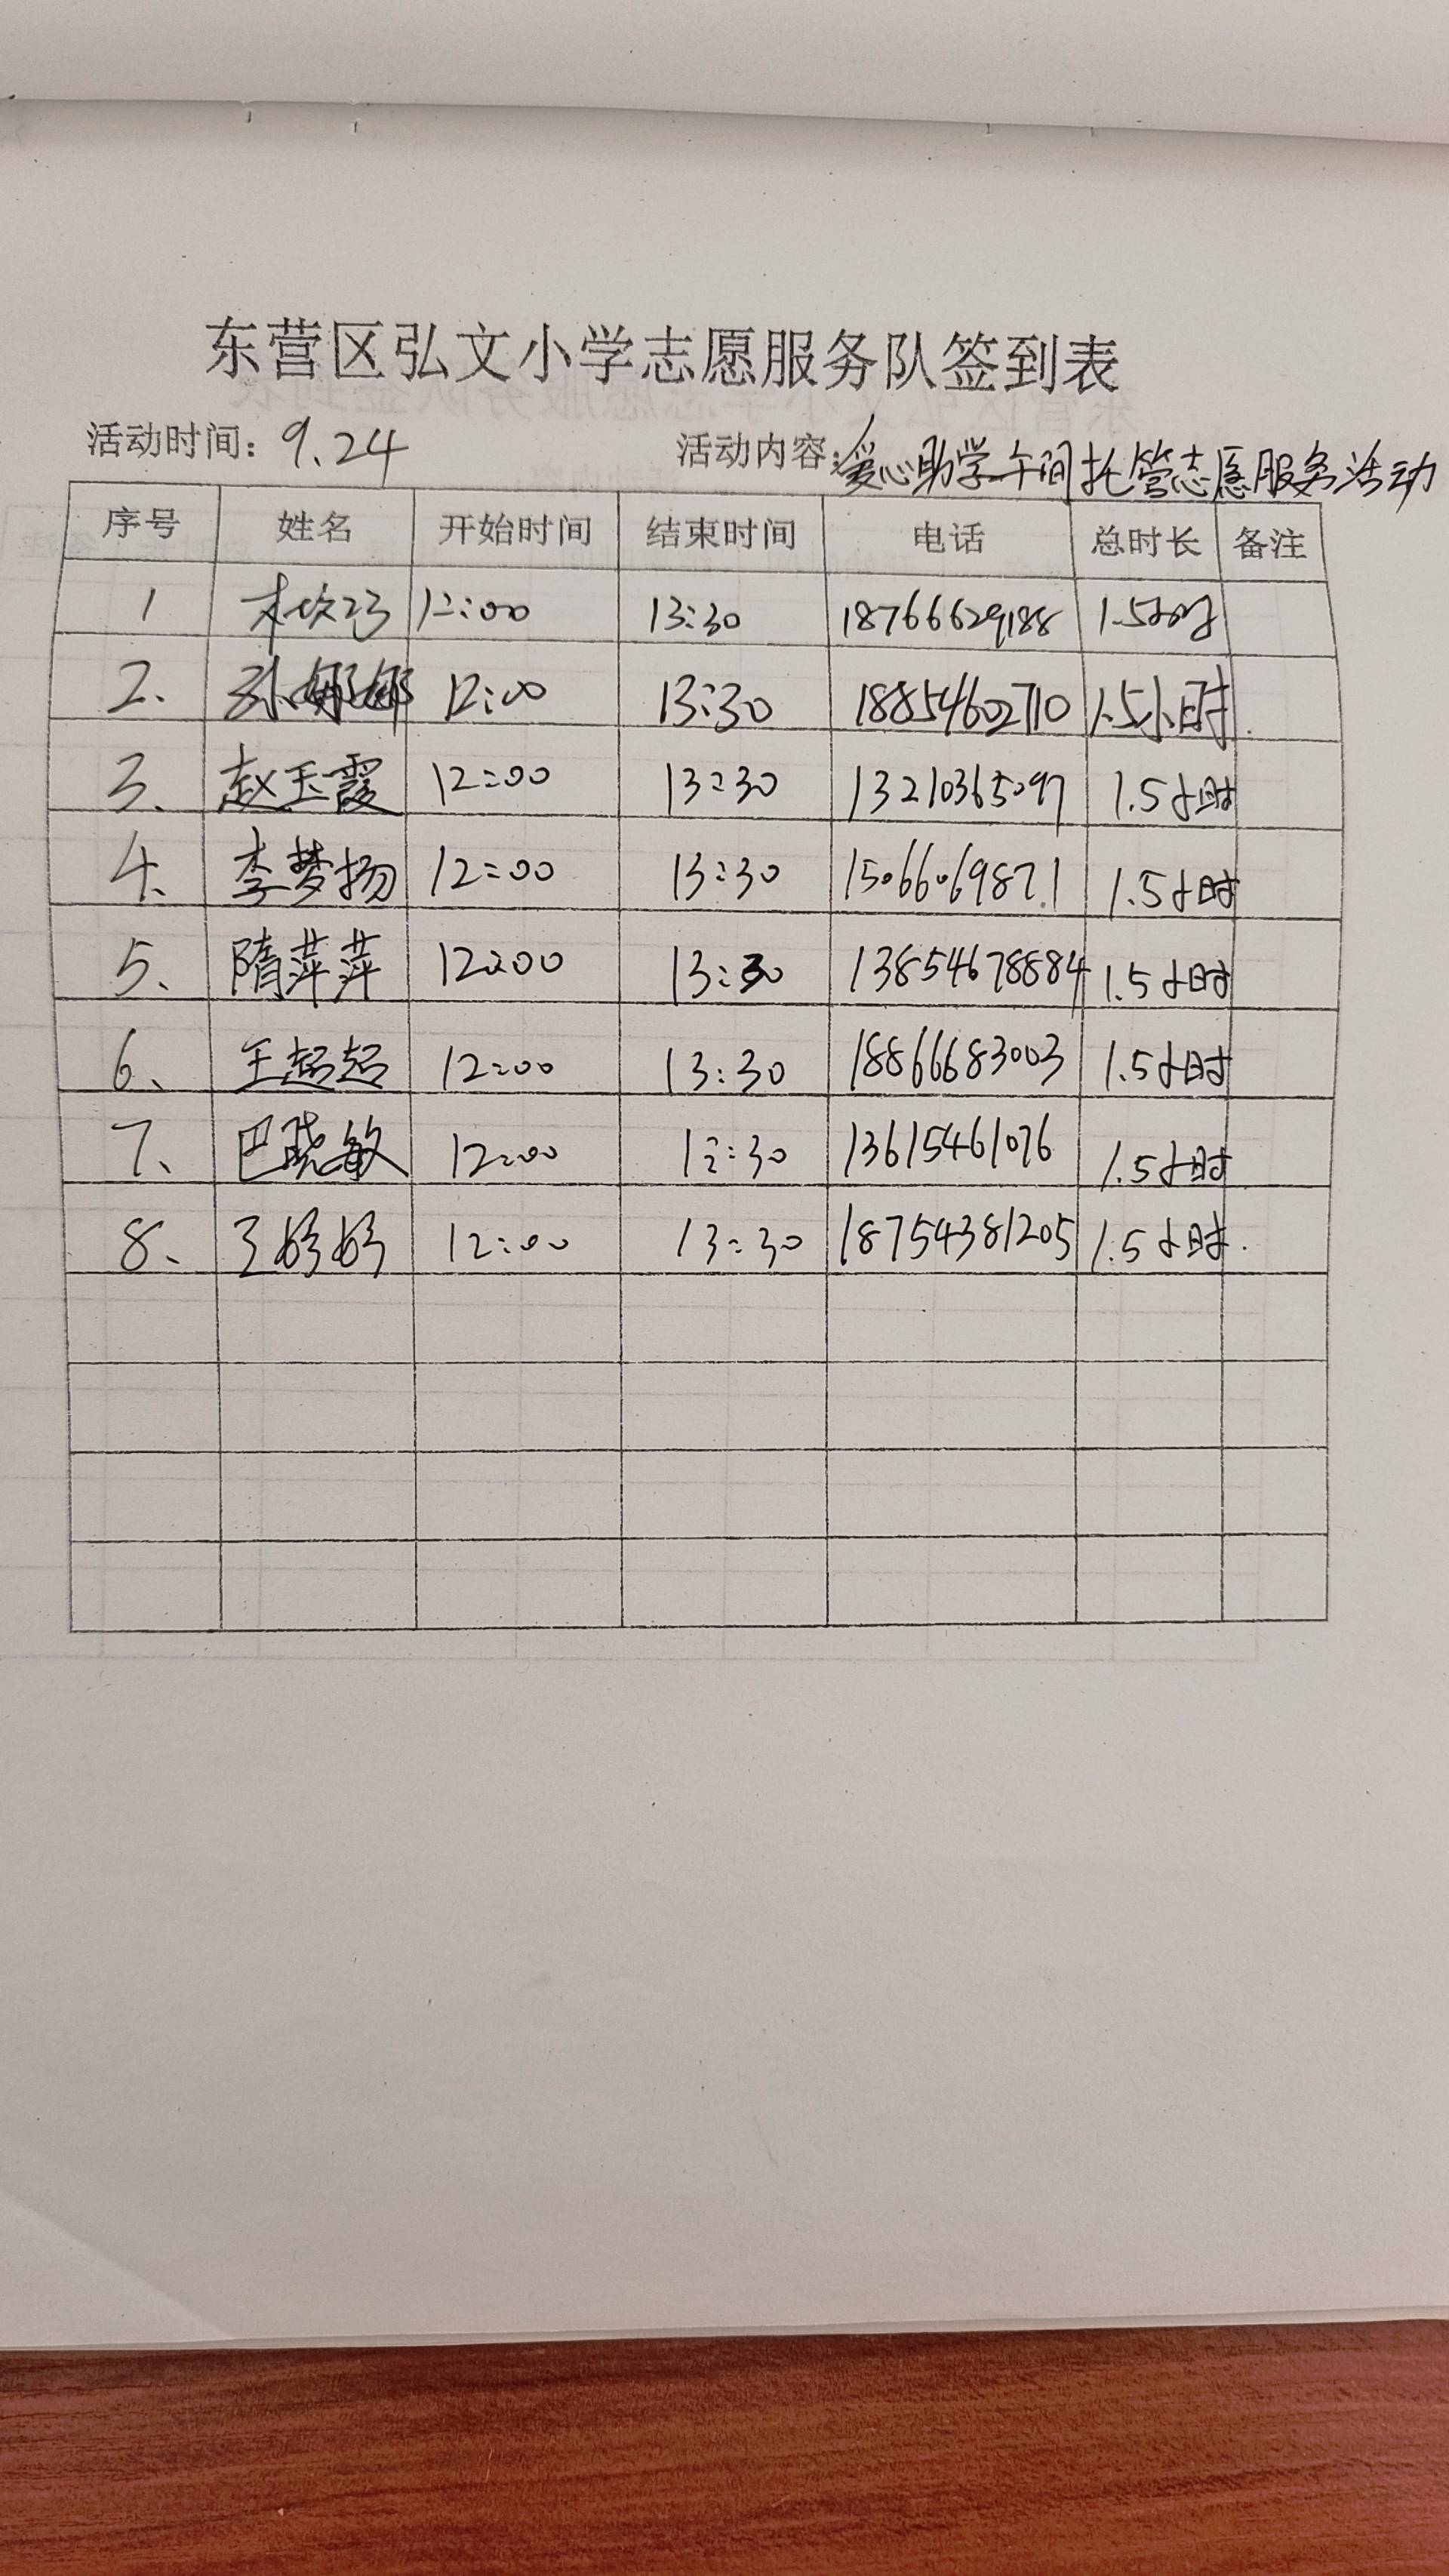 东营区弘文小学志愿服务队签到表
活动时间：9.24 活动内容：爱心助学午间托管志愿服务活动
序号 姓名 开始时间 结束时间 电话 总时长 备注
1 12:00 13:30 18766629188 1.5小时
2、 孙娜娜 12:00 13:30 18854602710 1.5小时.
3、 赵玉霞 12:00 13:30 13210365097 1.5小时
4、 李梦扬 12:00 13:30 15066069871 1.5小时
5、 隋萍萍 12:00 13:30 13854678884 1.5小时
6、 王超超 12:00 13:30 18866683003 1.5小时
7、 巴晓敏 12:00 13:30 13615461076 1.5小时
8、 12:00 13:30 18754381205 1.5小时.